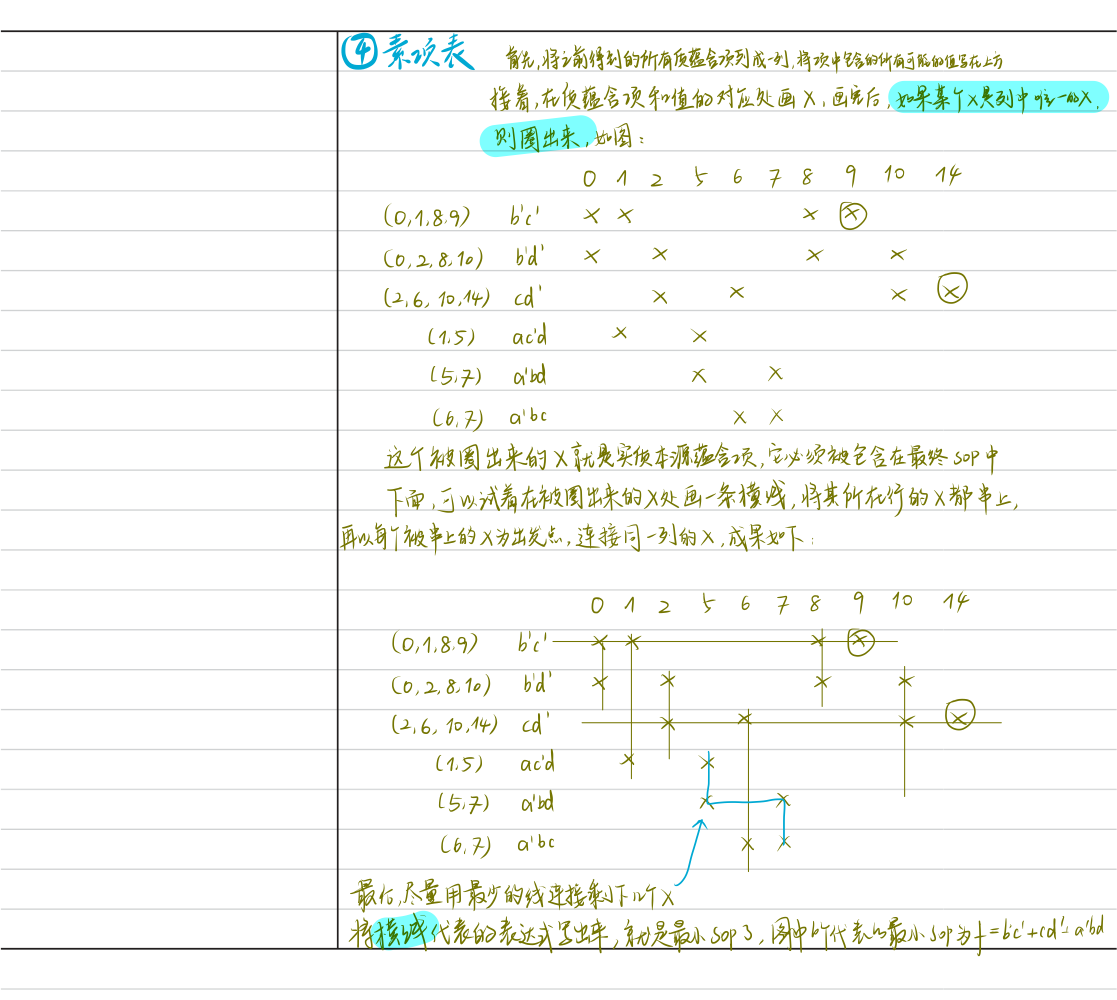 ④素项表 首先,将之前得到的所有质蕴含项列成一列,将项中包含的所有可能的值写在上方
接着,在质蕴含项和值的对应处画X,画完后,如果某个X是列中唯一的X,
则圈出来,如图:
0 1 2 5 6 7 8 9 10 14
(0,1,8,9) b'c' × × × ⊗
(0,2,8,10) b'd' × × × ×
(2,6,10,14) cd' × × × ⊗
(1,5) ac'd × ×
(5,7) a'bd × ×
(6,7) a'bc × ×
这个被圈出来的X就是实质本源蕴含项,它必须被包含在最终SOP中
下面,可以试着在被圈出来的X处画一条横线,将其所在行的X都串上,
再以每个被串上的X为出发点,连接同一列的X,成果如下:
0 1 2 5 6 7 8 9 10 14
(0,1,8,9) b'c' × × × ⊗
(0,2,8,10) b'd' × × × ×
(2,6,10,14) cd' × × × ⊗
(1,5) ac'd × ×
(5,7) a'bd × ×
(6,7) a'bc × ×
最后,尽量用最少的线连接剩下几个X
将横线代表的表达式写出来,就是最小SOP了,图中所代表的最小SOP为f=b'c'+cd'+a'bd